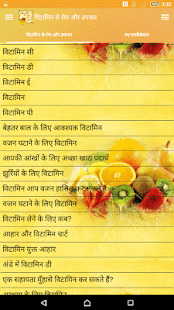 3:38
विटामिन से रोग और उपचार
विटामिन से रोग और उपचार
नए एप्लीकेशन
विटामिन सी
विटामिन डी
विटामिन ई
विटामिन
विटामिन पी
बेहतर बाल के लिए आवश्यक विटामिन
वजन घटाने के लिए विटामिन
आपकी आंखों के लिए अच्छा खाद्य पदार्थ
झुर्रियों के लिए विटामिन
विटामिन आप वजन हासिल
वजन घटाने के लिए विटामिन
विटामिन लेने के लिए कब?
आहार और विटामिन चार्ट
विटामिन युक्त आहार
अंडे में विटामिन डी
एक सहायता मुँहासे विटामिन कर सकते हैं?
के लिए विटामिन